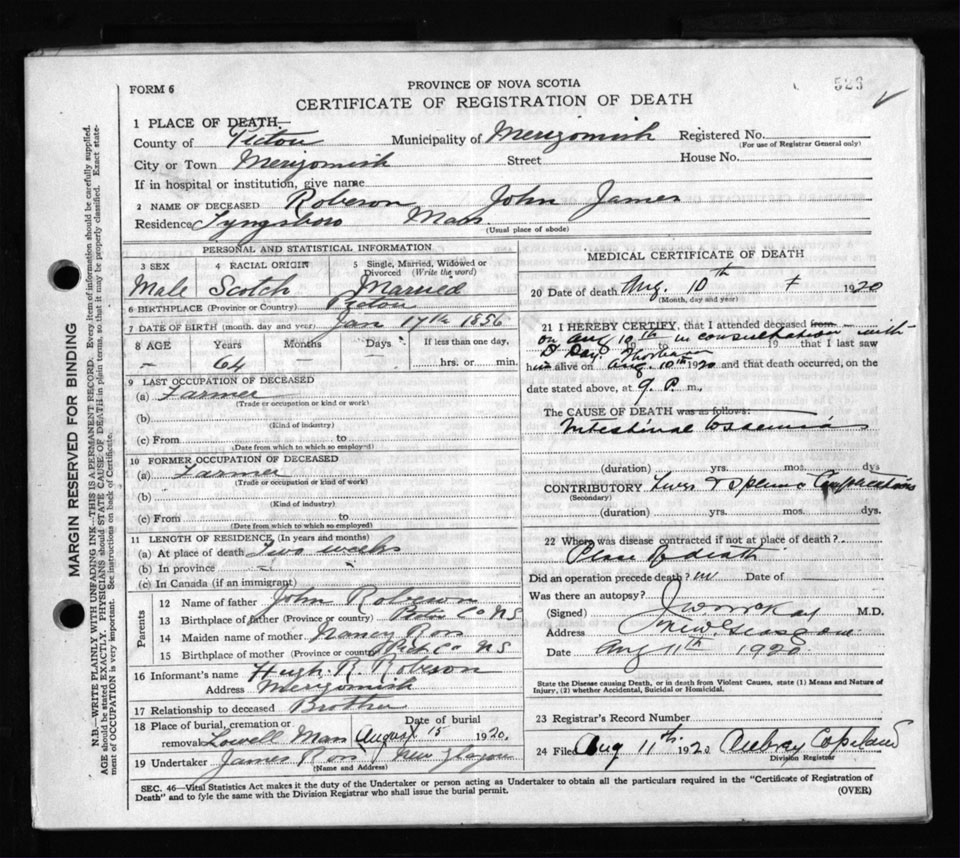 523
FORM 6
PROVINCE OF NOVA SCOTIA
CERTIFICATE OF REGISTRATION OF DEATH
MARGIN RESERVED FOR BINDING
N.B.—WRITE PLAINLY WITH UNFADING INK—THIS IS A PERMANENT RECORD. Every item of information should be carefully supplied.
AGE should be stated EXACTLY. PHYSICIANS should STATE CAUSE OF DEATH in plain terms, so that it may be properly classified. Exact state-
ment of OCCUPATION is very important. See instructions on back of Certificate.
1 PLACE OF DEATH—
County of Pictou Municipality of Merigomish Registered No.
(For use of Registrar General only)
City or Town Merigomish Street House No.
If in hospital or institution, give name
2 NAME OF DECEASED Robeson John James
Residence Tyngsboro Mass
(Usual place of abode)
PERSONAL AND STATISTICAL INFORMATION
3 SEX 4 RACIAL ORIGIN 5 Single, Married, Widowed or Divorced (Write the word)
Male Scotch Married
6 BIRTHPLACE (Province or Country) Pictou
7 DATE OF BIRTH (month, day and year) Jan 17th 1856
8 AGE Years Months Days If less than one day,
– 64 – – hrs. or min.
9 LAST OCCUPATION OF DECEASED
(a) Farmer
(Trade or occupation or kind or work)
(b)
(Kind of industry)
(c) From to
(Date from which to which so employed)
10 FORMER OCCUPATION OF DECEASED
(a) Farmer
(Trade or occupation or kind of work)
(b)
(Kind of industry)
(c) From to
(Date from which to which so employed)
11 LENGTH OF RESIDENCE (In years and months)
(a) At place of death Two weeks
(b) In province –
(c) In Canada (if an immigrant)
Parents
12 Name of father John Robeson
13 Birthplace of father (Province or country) Pict Co NS
14 Maiden name of mother Nancy Ross
15 Birthplace of mother (Province or country) Pict Co NS
16 Informant's name Hugh R. Robeson
Address Merigomish
17 Relationship to deceased Brother
18 Place of burial, cremation or Date of burial
removal Lowell Mass August 15 1920.
19 Undertaker James Ross New Glasgow
(Name and Address)
MEDICAL CERTIFICATE OF DEATH
20 Date of death Aug. 10th 1920
(Month, day and year)
21 I HEREBY CERTIFY, that I attended deceased from
on Aug 10th to in consultation with
19 that I last saw
Dr Day Thorburn
him alive on Aug. 10th 1920 and that death occurred, on the
date stated above, at 9 P. m.
The CAUSE OF DEATH was as follows:
Intestinal
(duration) yrs. mos. dys
CONTRIBUTORY Liver &
(Secondary)
(duration) yrs. mos. dys.
22 Where was disease contracted if not at place of death?
Place of death
Did an operation precede death? no Date of
Was there an autopsy?
(Signed) J W McKay M.D.
Address New Glasgow
Date Aug 11th 1920
State the Disease causing Death, or in death from Violent Causes, state (1) Means and Nature of
Injury, (2) whether Accidental, Suicidal or Homicidal.
23 Registrar's Record Number
24 Filed Aug 11th 1920 Aubrey Copeland
Division Registrar
SEC. 46—Vital Statistics Act makes it the duty of the Undertaker or person acting as Undertaker to obtain all the particulars required in the "Certificate of Registration of
Death" and to fyle the same with the Division Registrar who shall issue the burial permit.
(OVER)